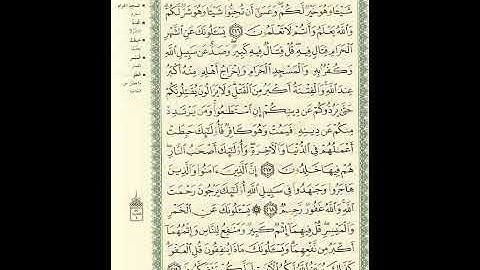 شَيْـًٔا وَهُوَ خَيْرٌ لَّكُمْ ۖ وَعَسَىٰٓ أَن تُحِبُّوا۟ شَيْـًٔا وَهُوَ شَرٌّ لَّكُمْ
وَٱللَّهُ يَعْلَمُ وَأَنتُمْ لَا تَعْلَمُونَ ٢١٦ يَسْـَٔلُونَكَ عَنِ ٱلشَّهْرِ
ٱلْحَرَامِ قِتَالٍ فِيهِ ۖ قُلْ قِتَالٌ فِيهِ كَبِيرٌ ۖ وَصَدٌّ عَن سَبِيلِ ٱللَّهِ
وَكُفْرٌۢ بِهِۦ وَٱلْمَسْجِدِ ٱلْحَرَامِ وَإِخْرَاجُ أَهْلِهِۦ مِنْهُ أَكْبَرُ
عِندَ ٱللَّهِ ۚ وَٱلْفِتْنَةُ أَكْبَرُ مِنَ ٱلْقَتْلِ ۗ وَلَا يَزَالُونَ يُقَـٰتِلُونَكُمْ
حَتَّىٰ يَرُدُّوكُمْ عَن دِينِكُمْ إِنِ ٱسْتَطَـٰعُوا۟ ۚ وَمَن يَرْتَدِدْ
مِنكُمْ عَن دِينِهِۦ فَيَمُتْ وَهُوَ كَافِرٌ فَأُو۟لَـٰٓئِكَ حَبِطَتْ
أَعْمَـٰلُهُمْ فِى ٱلدُّنْيَا وَٱلْـَٔاخِرَةِ ۖ وَأُو۟لَـٰٓئِكَ أَصْحَـٰبُ ٱلنَّارِ ۖ
هُمْ فِيهَا خَـٰلِدُونَ ٢١٧ إِنَّ ٱلَّذِينَ ءَامَنُوا۟ وَٱلَّذِينَ
هَاجَرُوا۟ وَجَـٰهَدُوا۟ فِى سَبِيلِ ٱللَّهِ أُو۟لَـٰٓئِكَ يَرْجُونَ رَحْمَتَ
ٱللَّهِ ۚ وَٱللَّهُ غَفُورٌ رَّحِيمٌ ٢١٨ ۞ يَسْـَٔلُونَكَ عَنِ ٱلْخَمْرِ
وَٱلْمَيْسِرِ ۖ قُلْ فِيهِمَآ إِثْمٌ كَبِيرٌ وَمَنَـٰفِعُ لِلنَّاسِ وَإِثْمُهُمَآ
أَكْبَرُ مِن نَّفْعِهِمَا ۗ وَيَسْـَٔلُونَكَ مَاذَا يُنفِقُونَ قُلِ ٱلْعَفْوَ ۗ